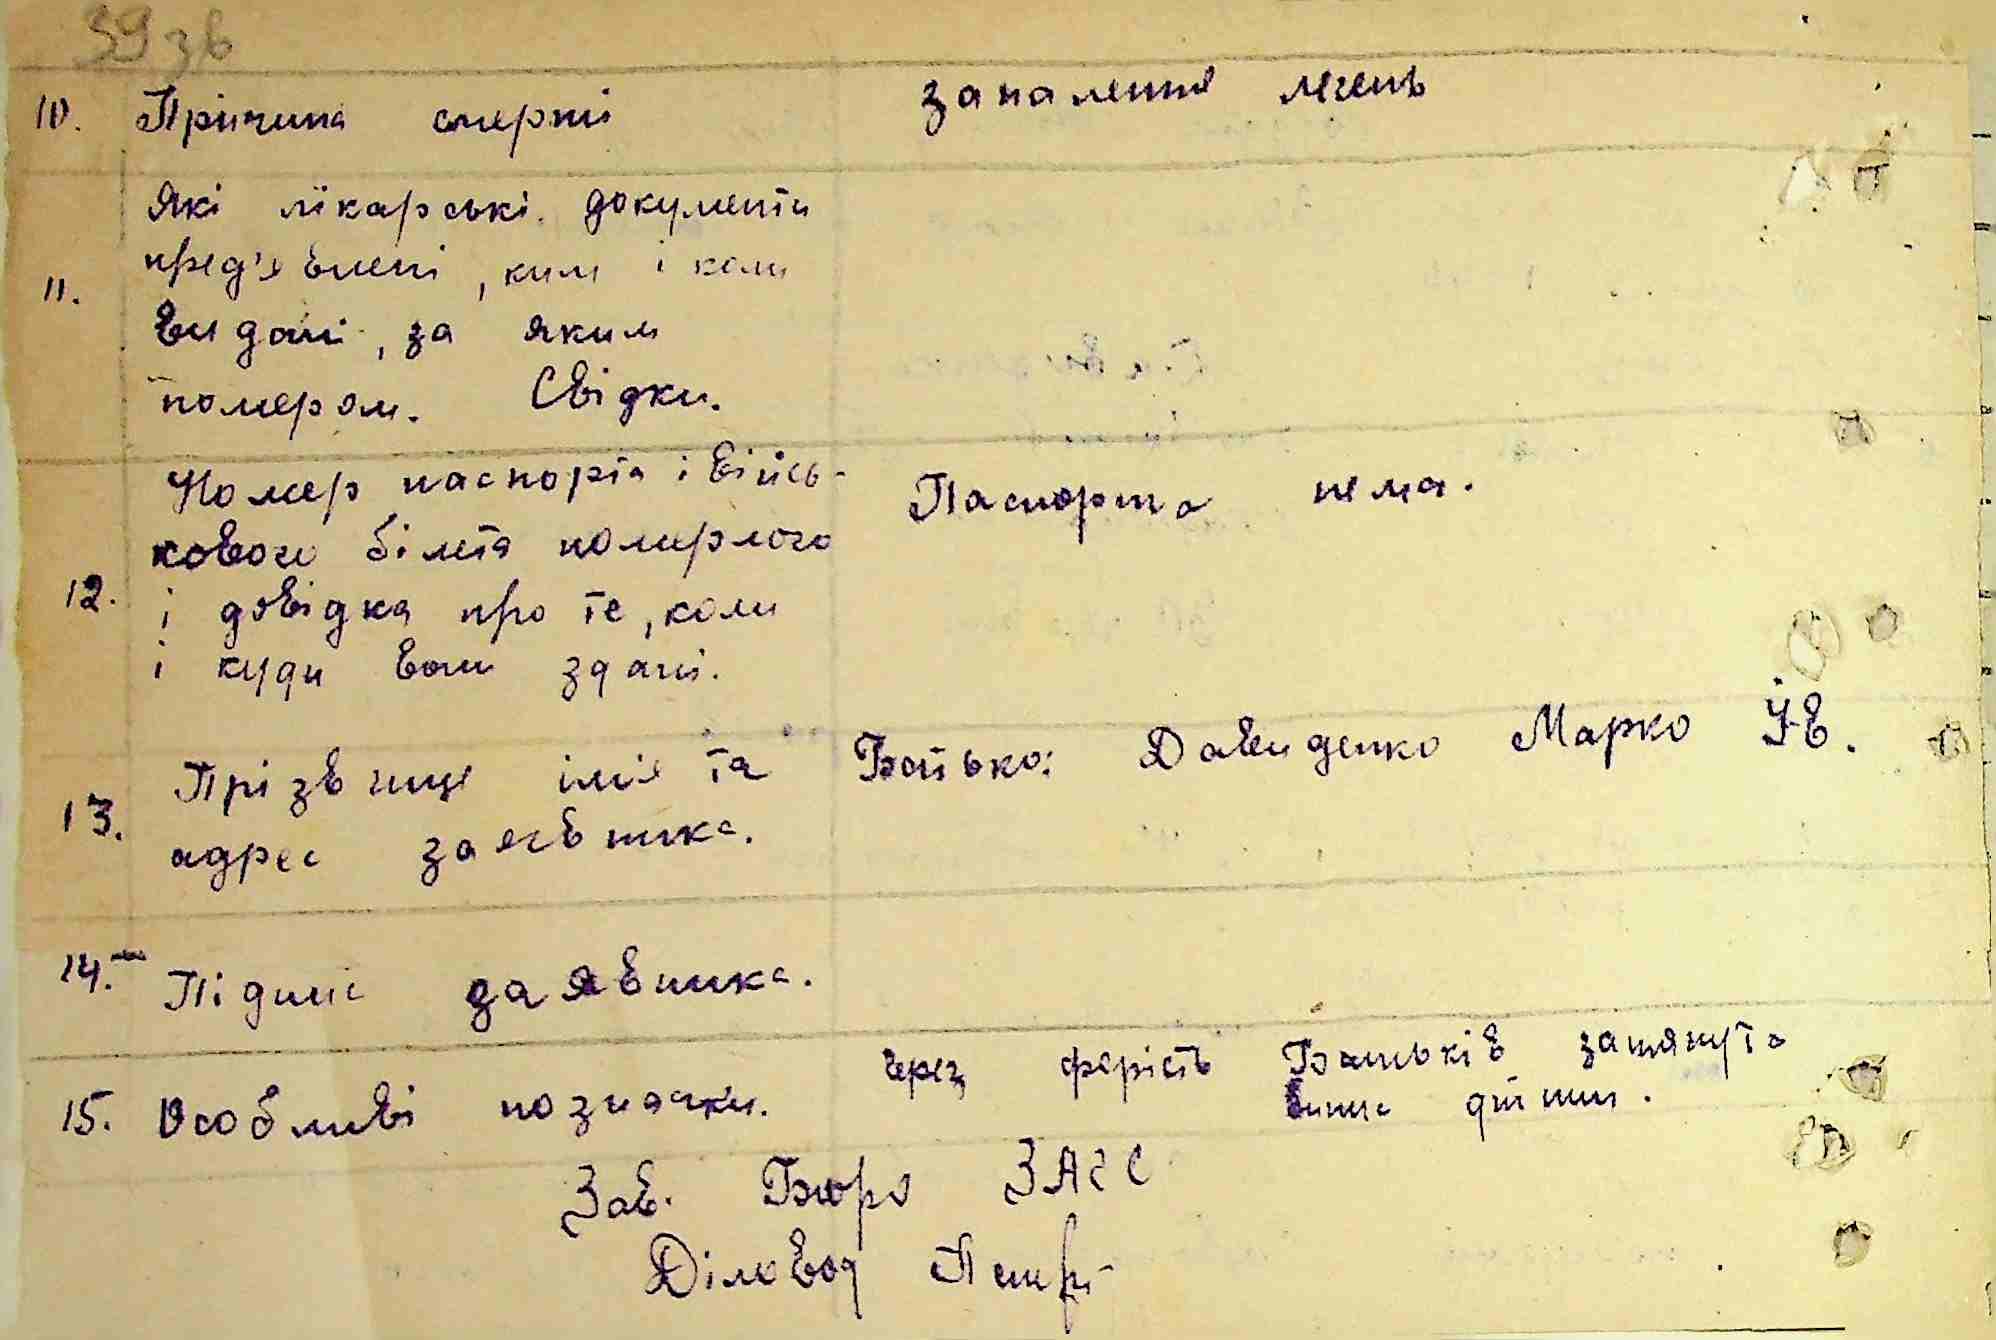 39 зв
10. Прічина смерті запалення легень
Які лікарські документи
11. пред'явлені, ким і коли
видані, за яким
номером. Свідки.
Номер паспорта і війсь-
Паспорта нема.
кового білета померлого
12. і довідка про те, коли
і куди вони здані.
13. Прізвище ім'я та Батько: Давиденко Марко
адрес заявника.
14. Підпис заявника.
15. Особливі позначки. через
Батьків затянута
Зав. Бюро ЗАГС
Діловод